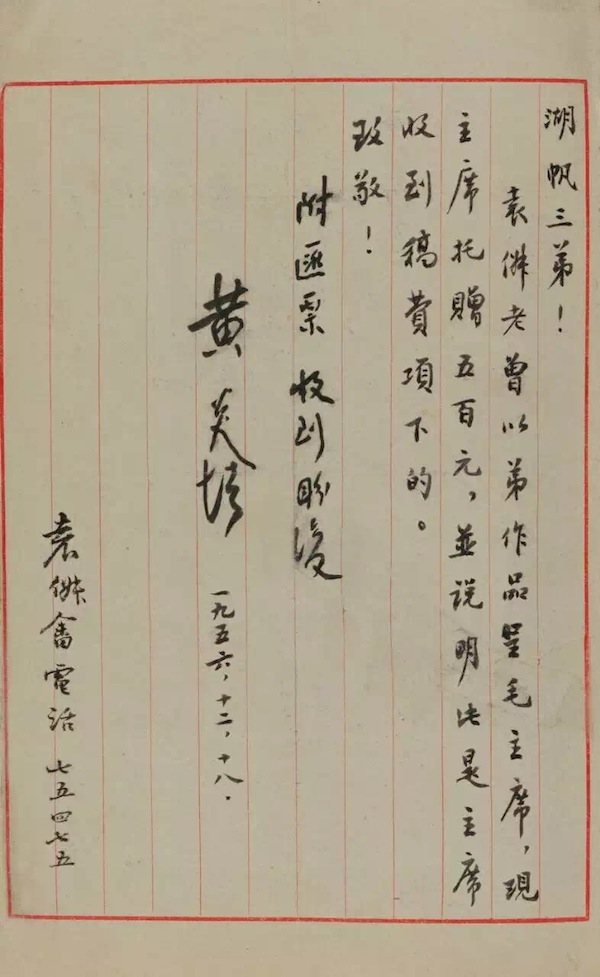 湖帆三弟！
袁倂老曾以弟作品呈毛主席，現
主席托贈五百元，並說明此是主席
收到稿費項下的。
致敬！
附匯票 收到盼復
黄炎培
一九五六，十二，十八．
袁倂畬電話 七五四七五